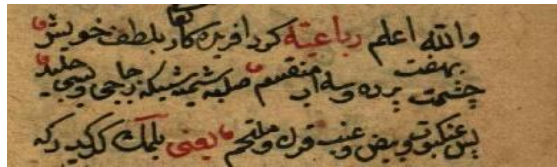 والله اعلم رباعیه کرد افریدکار بلطف خویش
چشمت بهفت پرده وسه اب منقسم صلبیه شیمیه شبکه زجاجی وپس جلید
پس عنکبوت وبیض وعنب قرن وملتحم یعنی بلمک کرکیدرکه